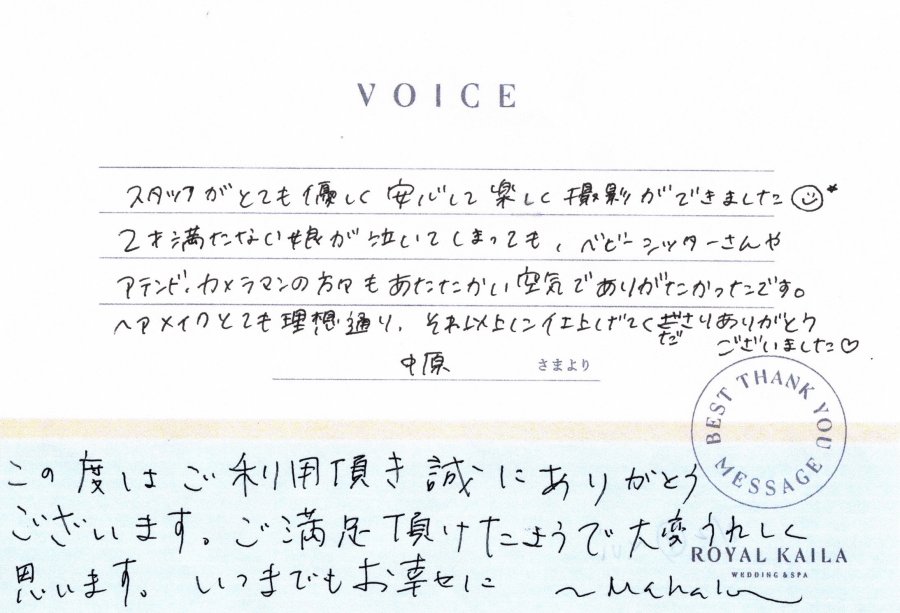 VOICE
スタッフがとても優しく安心して楽しく撮影ができました
2才満たない娘が泣いてしまっても、ベビーシッターさんや
アテンド、カメラマンの方々もあたたかい空気でありがたかったです。
ヘアメイクとても理想通り、それ以上に仕上げてくださりありがとう
ございました♡
中原 さまより
BEST THANK YOU MESSAGE
この度はご利用頂き誠にありがとう
ございます。ご満足頂けたようで大変うれしく
思います。いつまでもお幸せに ~Mahalo~
ROYAL KAILA
WEDDING & SPA